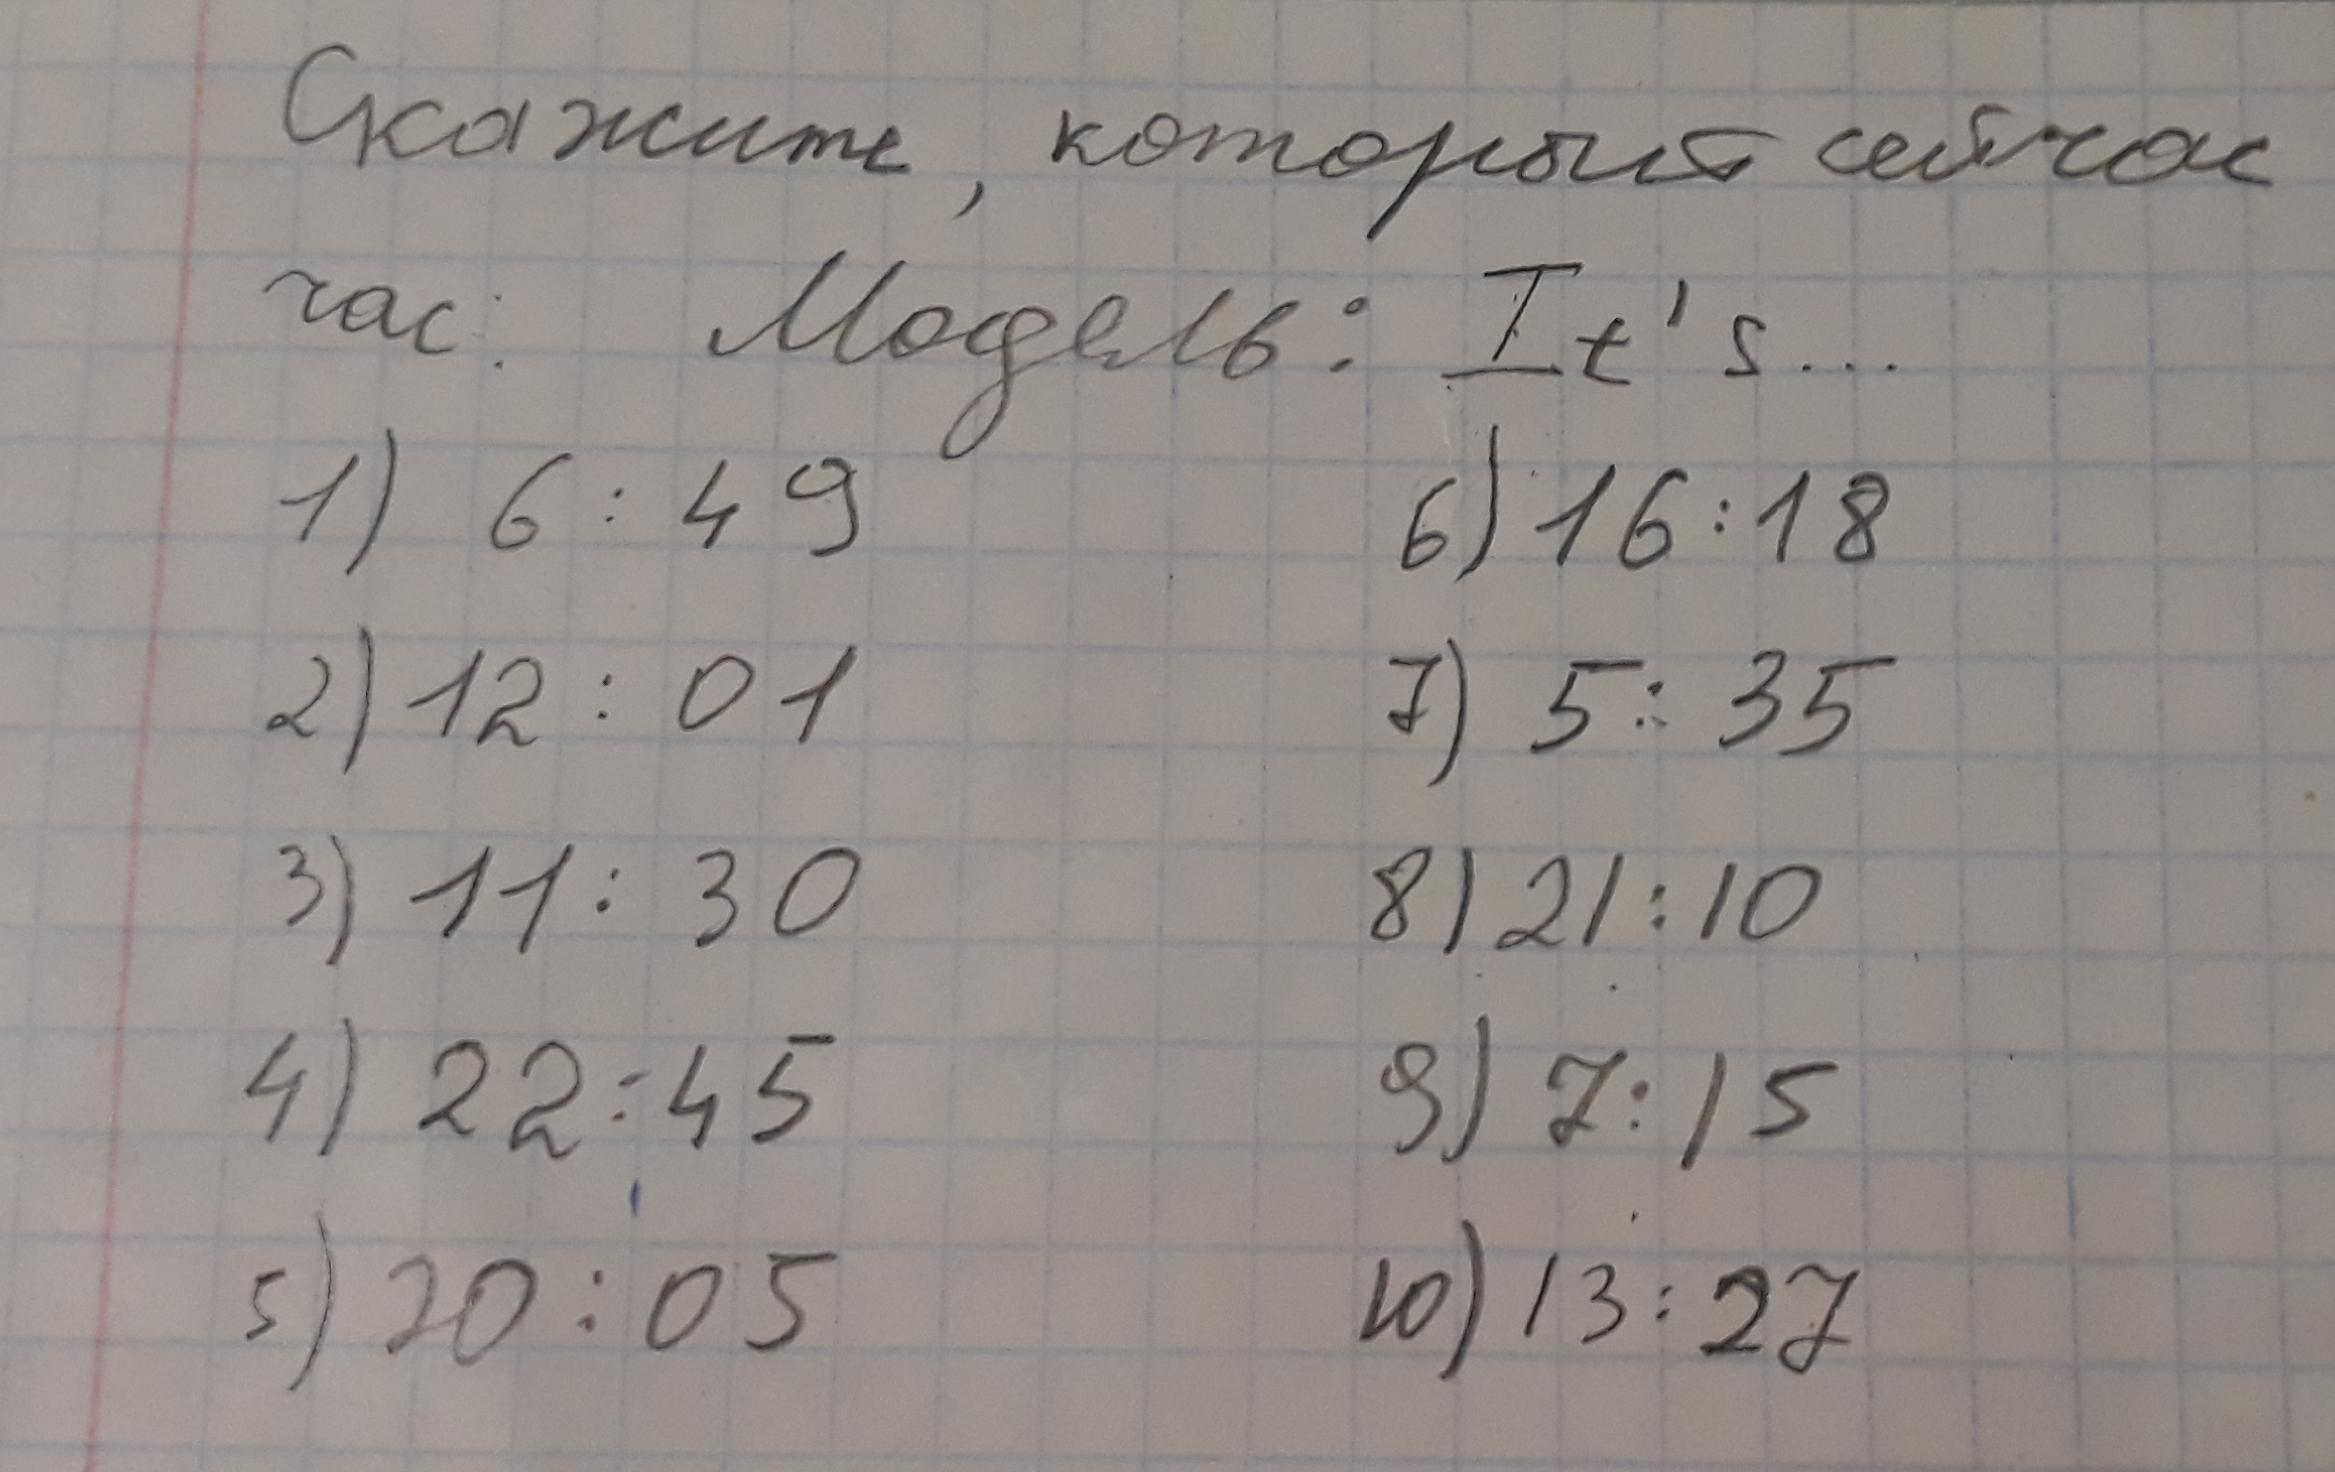 Скажите, который сейчас
час: Модель: It's...
1) 6:49
6) 16:18
2) 12:01
7) 5:35
3) 11:30
8) 21:10
4) 22:45
9) 7:15
5) 20:05
10) 13:27